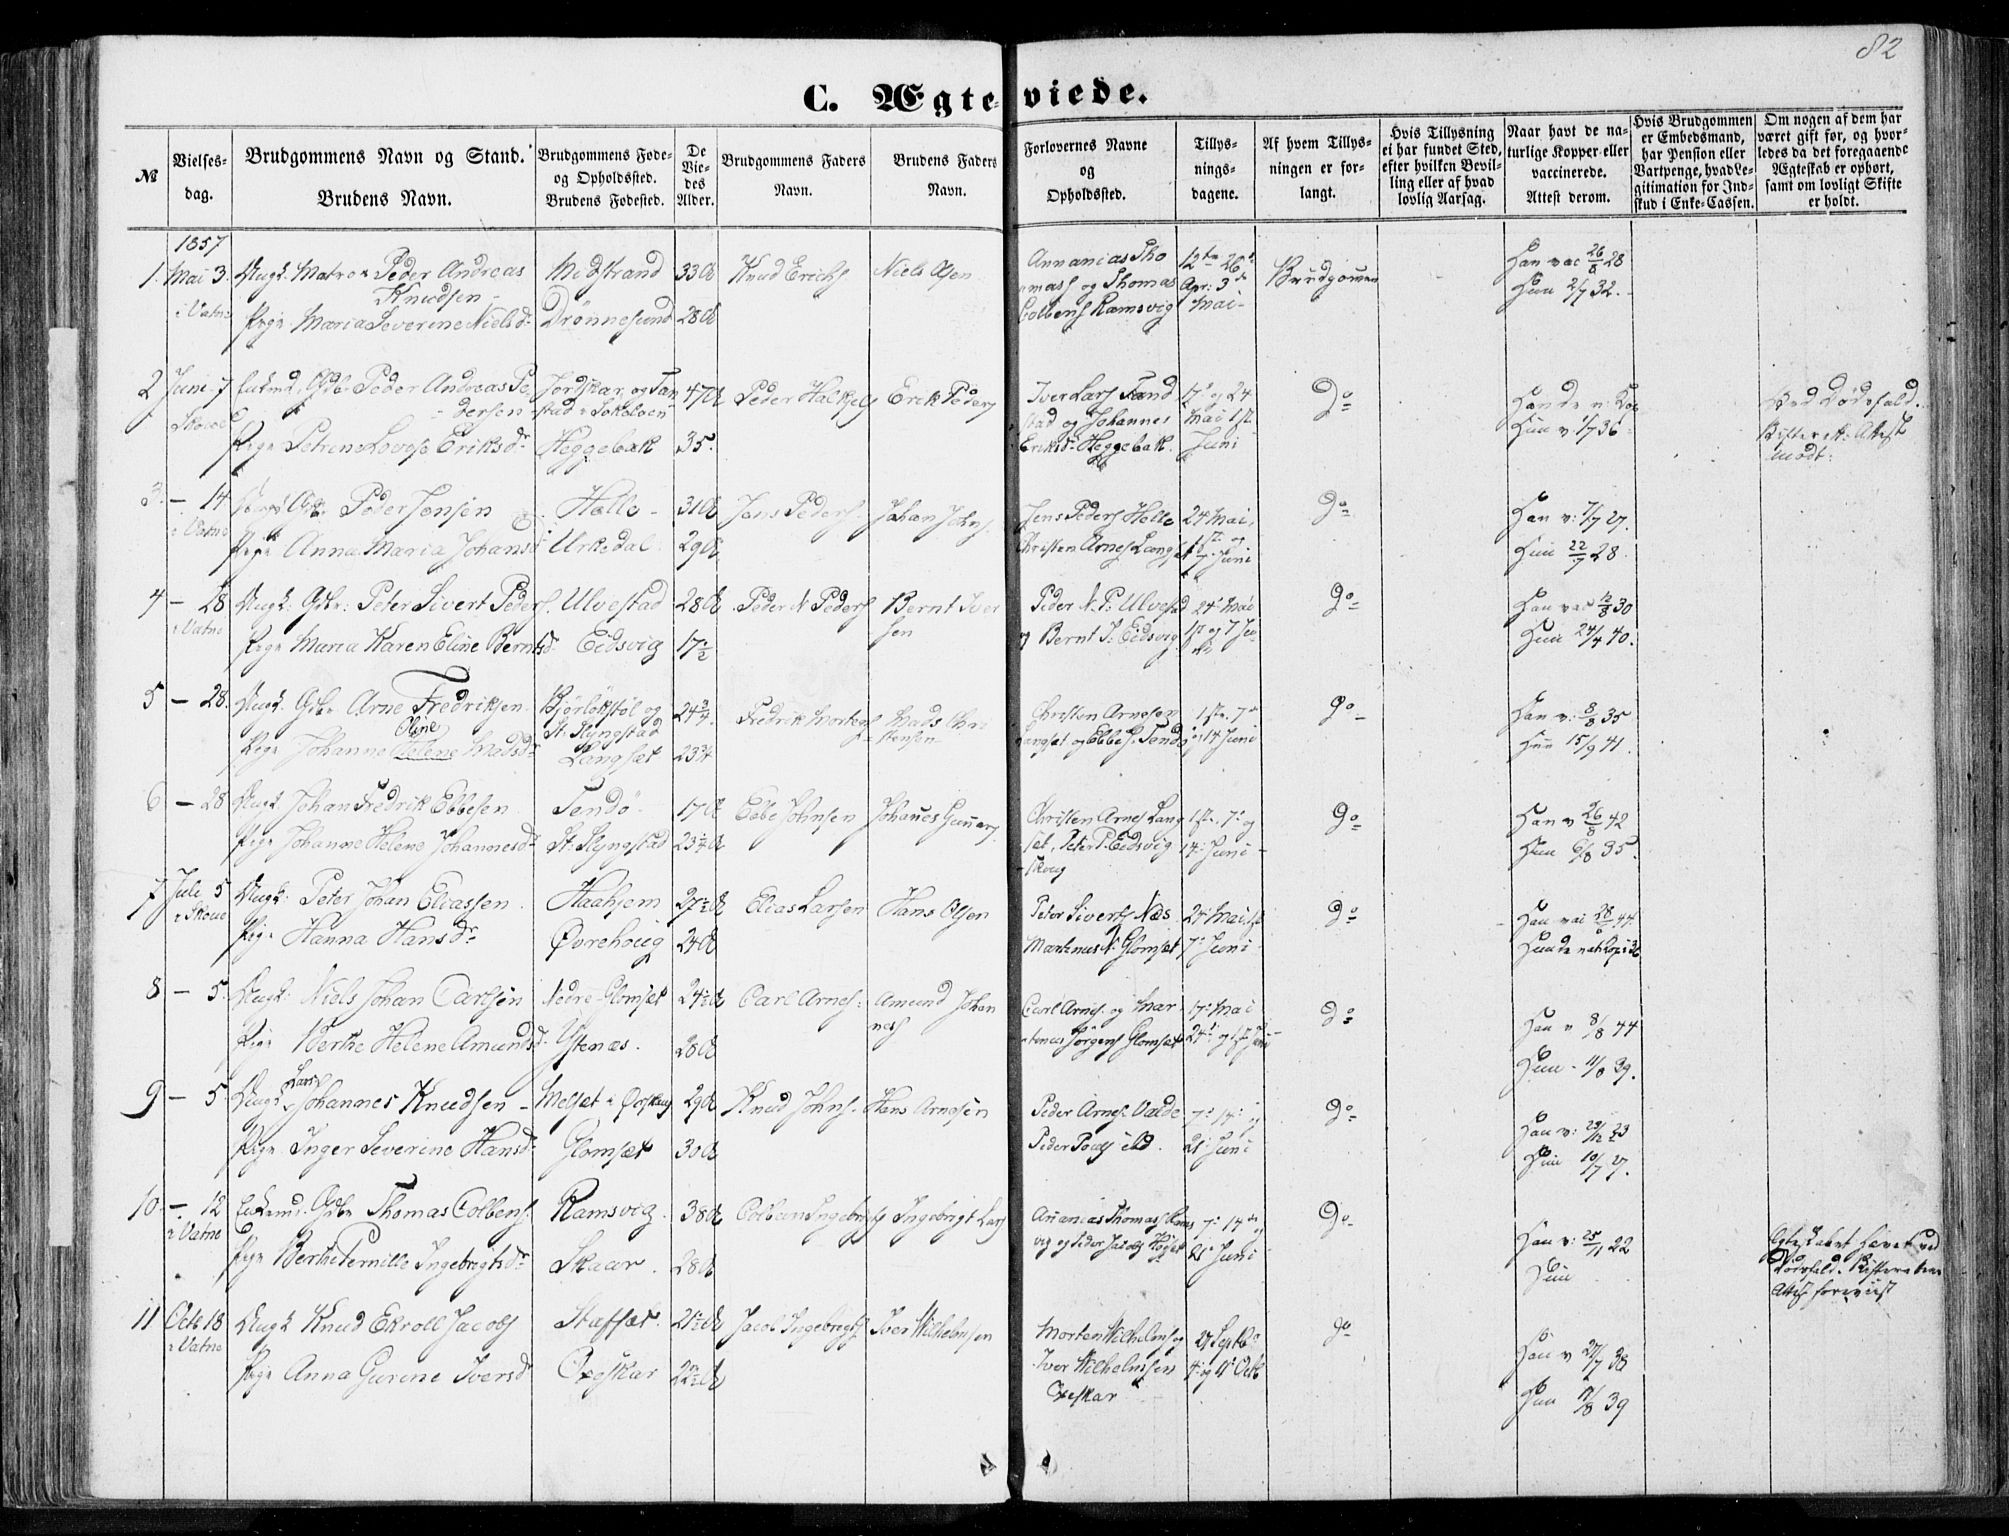 82
C. Ægteviede.
№
Vielsesdag.
Brudgommens Navn og Stand.
Brudens Navn.
Brudgommens Føde- og Opholdssted.
Brudens Fødested.
De Viedes Alder.
Brudgommens Faders Navn.
Brudens Faders Navn.
Forlovernes Navne og Opholdssted.
Tillysningsdagene.
Af hvem Tillysningen er forlangt.
Hvis Tillysning ei har fundet Sted, efter hvilken Bevilling eller af hvad lovlig Aarsag.
Naar havt de naturlige Kopper eller vaccinerede. Attest derom.
Hvis Brudgommen er Embedsmand, har Pension eller Vartpenge, hvad Legitimation for Indskud i Enke-Cassen.
Om nogen af dem har været gift før, og hvorledes da det foregaaende Ægteskab er ophørt, samt om lovligt Skifte er holdt.
1857
1. Mai 3. Ungk. Matros Peder Andreas Knudsen Midstrand 33 Knud Erichs Niels Olsen Annanias Thomass og Thomas Colbens Ramsvig 12te 26de Apr: 3de Mai Brudgommen Han vac 26/8 28
i Vatne Pige Maria Severine Nielsdr Drønnesund 28 Hun 2/7 32.
2 Juni 7 Enkemd. Gdbr Peder Andreas Pedersen Jordskar og Tanstad i Sokelven 47 Peder Halkjels Erik Peders Iver Lars Tandstad og Johannes Eriks Heggebak 17. og 24 Mai 1ste Juni Do Ved Dødsfald.
Skoue Pige Petrine Lovise Eriksdr Heggebak 35. Hun v 1/7 36 Skifter. Attest
3. - 14 Ungk Gbr. Peder Jensen Helle 31 Jens Peders Johan Johns. Jens Peders Helle 24 Mai, Do Han v: 7/7 27.
i Vatne Pige Anna Maria Johansd Urkedal 29 Christen Arnes Langset 1ste og 7. Juni Hun 22/7 28.
4 - 28 Ungk: Gdbr: Peter Sivert Peders. Ulvestad 28 Peder N Peders Bernt Iversen Peder N. P. Ulvestad 24. Mai Do Han vac 12/8 30
i Vatne Pige Maria Karen Eline Berntsd Eidsvig 17½ og Bernt I. Eidsvig 1ste og 7 Juni Hun 24/4 40.
5 - 28. Ungk. Gdbr Arne Fredriksen Bjørløkstøl og St: Slyngstad 24¾ Fredrik Mortens Mads Christensen Christen Arnesen 1ste. 7de Do Han v: 8/8 35
Pige Johanne Oline Helene Madsdr Langset 23¾ Langset og Ebbe J. Tendø og 14 Juni Hun 15/9 41.
6 - 28 Ungk. Johan Fredrik Ebbesen Tendø 17 Ebbe Johnsen Johanes Gunners Christen Arnes Langset, Peter P. Eidsvigskoug 1ste. 7de og 14. Juni Do Han v 26/8 42
Pige Johanne Helene Johannesdr St: Slyngstad 23½ Hun 6/8 35.
7 Juli 5 Ungk: Peter Johan Eliassen Haahjem 27½ Elias Larsen Hans Olsen Peter Siverts Næs 24. Mai, 1ste Do Han vac 28/6 44.
i Skoue Pige Hanna Hansdr Øvrehoug 24 Martinus N. Glomset 7. Juni
8 - 5. Ungk: Niels Johan Carlsen Nedre-Glomset 24½ Carl Arnes: Amund Johannes Carl Arnes. og Martinus Jørgens Glomset 17. Mai 24de og 1ste Juni Do Han v 8/8 44
Pige Berthe Helene Amundsd. Ystenæs. 28 Hun - 11/8 39.
9 - 5. Ungk Lars Johannes Knudsen Melset i Ørskoug 29 Knud Johns. Hans Arnesen Peder Arnes Valde 7. 14. og Do Han v: 29/12 23
Pige Inger Severine Hansdr Glomset 30 Peder Pouls ibd. 21. Juni Hun 10/7 27.
10. - 12 Enkemd. Gdbr Thomas Colbens. Ramsvig. 38 Colbein Ingebrigts Ingebrigt Lars Ananias Thomass Ramsvig og Peder Jacobs 7. 14de og 21. Juni Do Han v: 25/11 22
i Vatne Pige Berthe Pernille Ingebrigtsdr Skaar. 28 Hun
Ægteskabet hævet ved Dødsfald. Attest foreviist
11 Octb 18 Ungk Knud Ekroll Jacobs Stafset. 21½ Jacob Ingebrigts. Iver Wilhelmsen Morten Wilhelms og 27 Septb: Do Han v 27/7 38
i Vatne Pige Anna Gurine Iversd Oxeskar 22½ Iver Wilhelmsen Oxeskar 4. og 11. Octb Hun 17/8 39